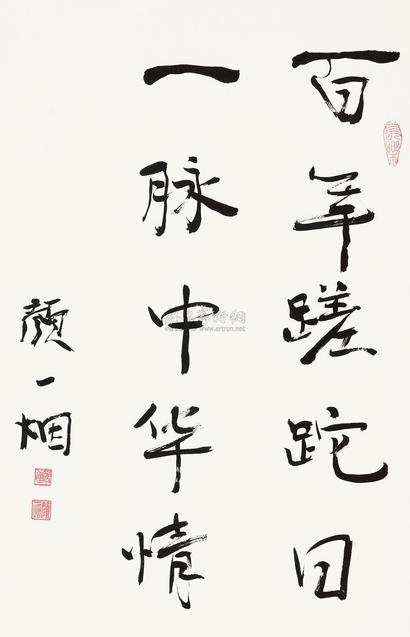 百年蹉跎日
一脉中华情
颜一烟
www.artron.net